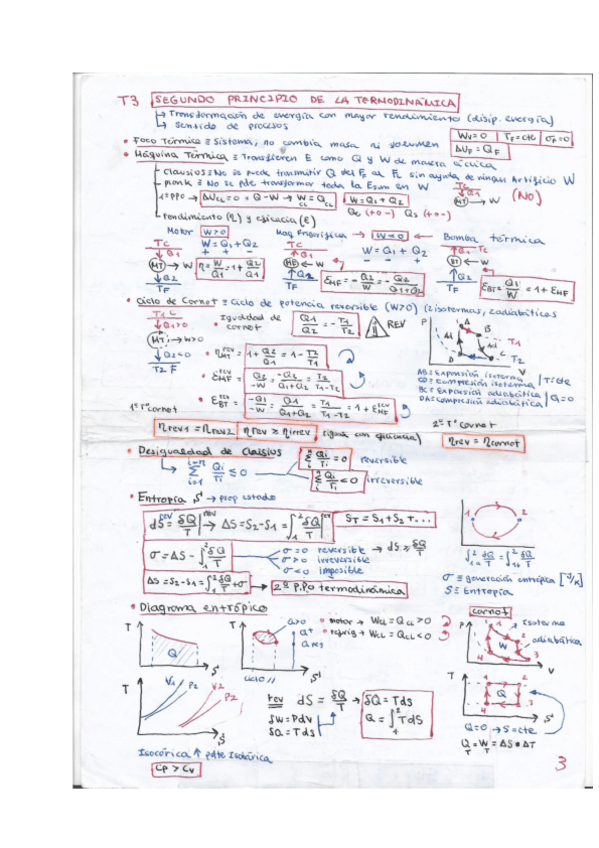 T3 SEGUNDO PRINCIPIO DE LA TERMODINÁMICA
↳ Transformación de energía con mayor rendimiento (disip. energía)
↳ Sentido de procesos
• Foco Térmico ≡ Sistema, no cambia masa ni volumen
WF=0 | TF=cte | σF=0
ΔUF = QF
• Máquina Térmica ≡ Transfieren E como Q y W de manera cíclica
Clausios ≡ No se puede transmitir Q del FF al FC sin ayuda de ningun Artificio W
Plank ≡ No se pde transformar toda la en W
TC ↓Q1 MT → W (NO)
1ºPPO → ΔUCL=0 = Q-W → WCL = QCL
W = Q1+Q2
rendimiento (η) y eficacia (ε)
Motor W>0
Maq Frigorífica → W<0 ← Bomba térmica
TC ↓Q1 MT → W ↓Q2 TF
W = Q1 + Q2
+ +
η = W/Q1 = 1 + Q2/Q1
TC ↑Q1 MF ← W ↑Q2 TF
W = Q1 + Q2
- - +
εMF = - Q2/W = - Q2/Q1+Q2
↑Q1 TC BT ← W ↑Q2 TF
εBT = Q1/W = 1+εMF
• Ciclo de Carnot ≡ Ciclo de potencia reversible (W>0) (2 isotermas, 2 adiabáticas
T1 C ↓Q1>0 MT → W>0 ↓Q2<0 T2 F
Igualdad de carnot
Q1/Q2 = - T1/T2
REV
• ηrevMT = 1 + Q2/Q1 = 1 - T2/T1
• εrevMF = Q2/-W = -Q2/Q1+Q2 = T2/T1-T2
• εrevBT = -Q1/-W = Q1/Q1+Q2 = T1/T1-T2 = 1+εrevMF
P A B T1 D C T2 V
AB ≡ Expansión isoterma
CD ≡ Compresión isoterma | T=cte
BC ≡ Expansión adiabática
DA ≡ Compresión adiabática | Q=0
1ºTº carnot
ηrev1 = ηrev2 | ηrev ≥ ηirrev (igual con eficacia)
2º Tº carnot
ηrev = ηcarnot
• Desigualdad de Clausius
Σ Qi/Ti ≤ 0
Σ Qi/Ti = 0 reversible
Σ Qi/Ti < 0 irreversible
• Entropía S → prop estado
dS = δQ/T|rev → ΔS = S2-S1 = ∫12 δQ/T|rev
ST = S1+S2+...
σ = ΔS - ∫12 δQ/T
σ=0 reversible → dS = δQ/T
σ>0 irreversible
σ<0 imposible
ΔS = S2-S1 = ∫12 δQ/T + σ → 2º P.PO termodinámica
1 2
σ ≡ generación entrópica [J/K]
S ≡ Entropía
• Diagrama entrópico
T Q S
T S ciclo
• motor → WCL = QCL>0
• refrig → WCL = QCL<0
carnot
P 1 2 W 3 4 V
Isoterma
adiabática
T V1 P2 V2 P2 S
rev dS = δQ/T → δQ = Tds
δW = Pdv
δQ = Tds
Q = ∫12 Tds
T 1 2 Q 4 3 S
Q=0 → S=cte
QT = WT = ΔS·ΔT
Isocórica ↑ pdte Isobárica
Cp > Cv
3